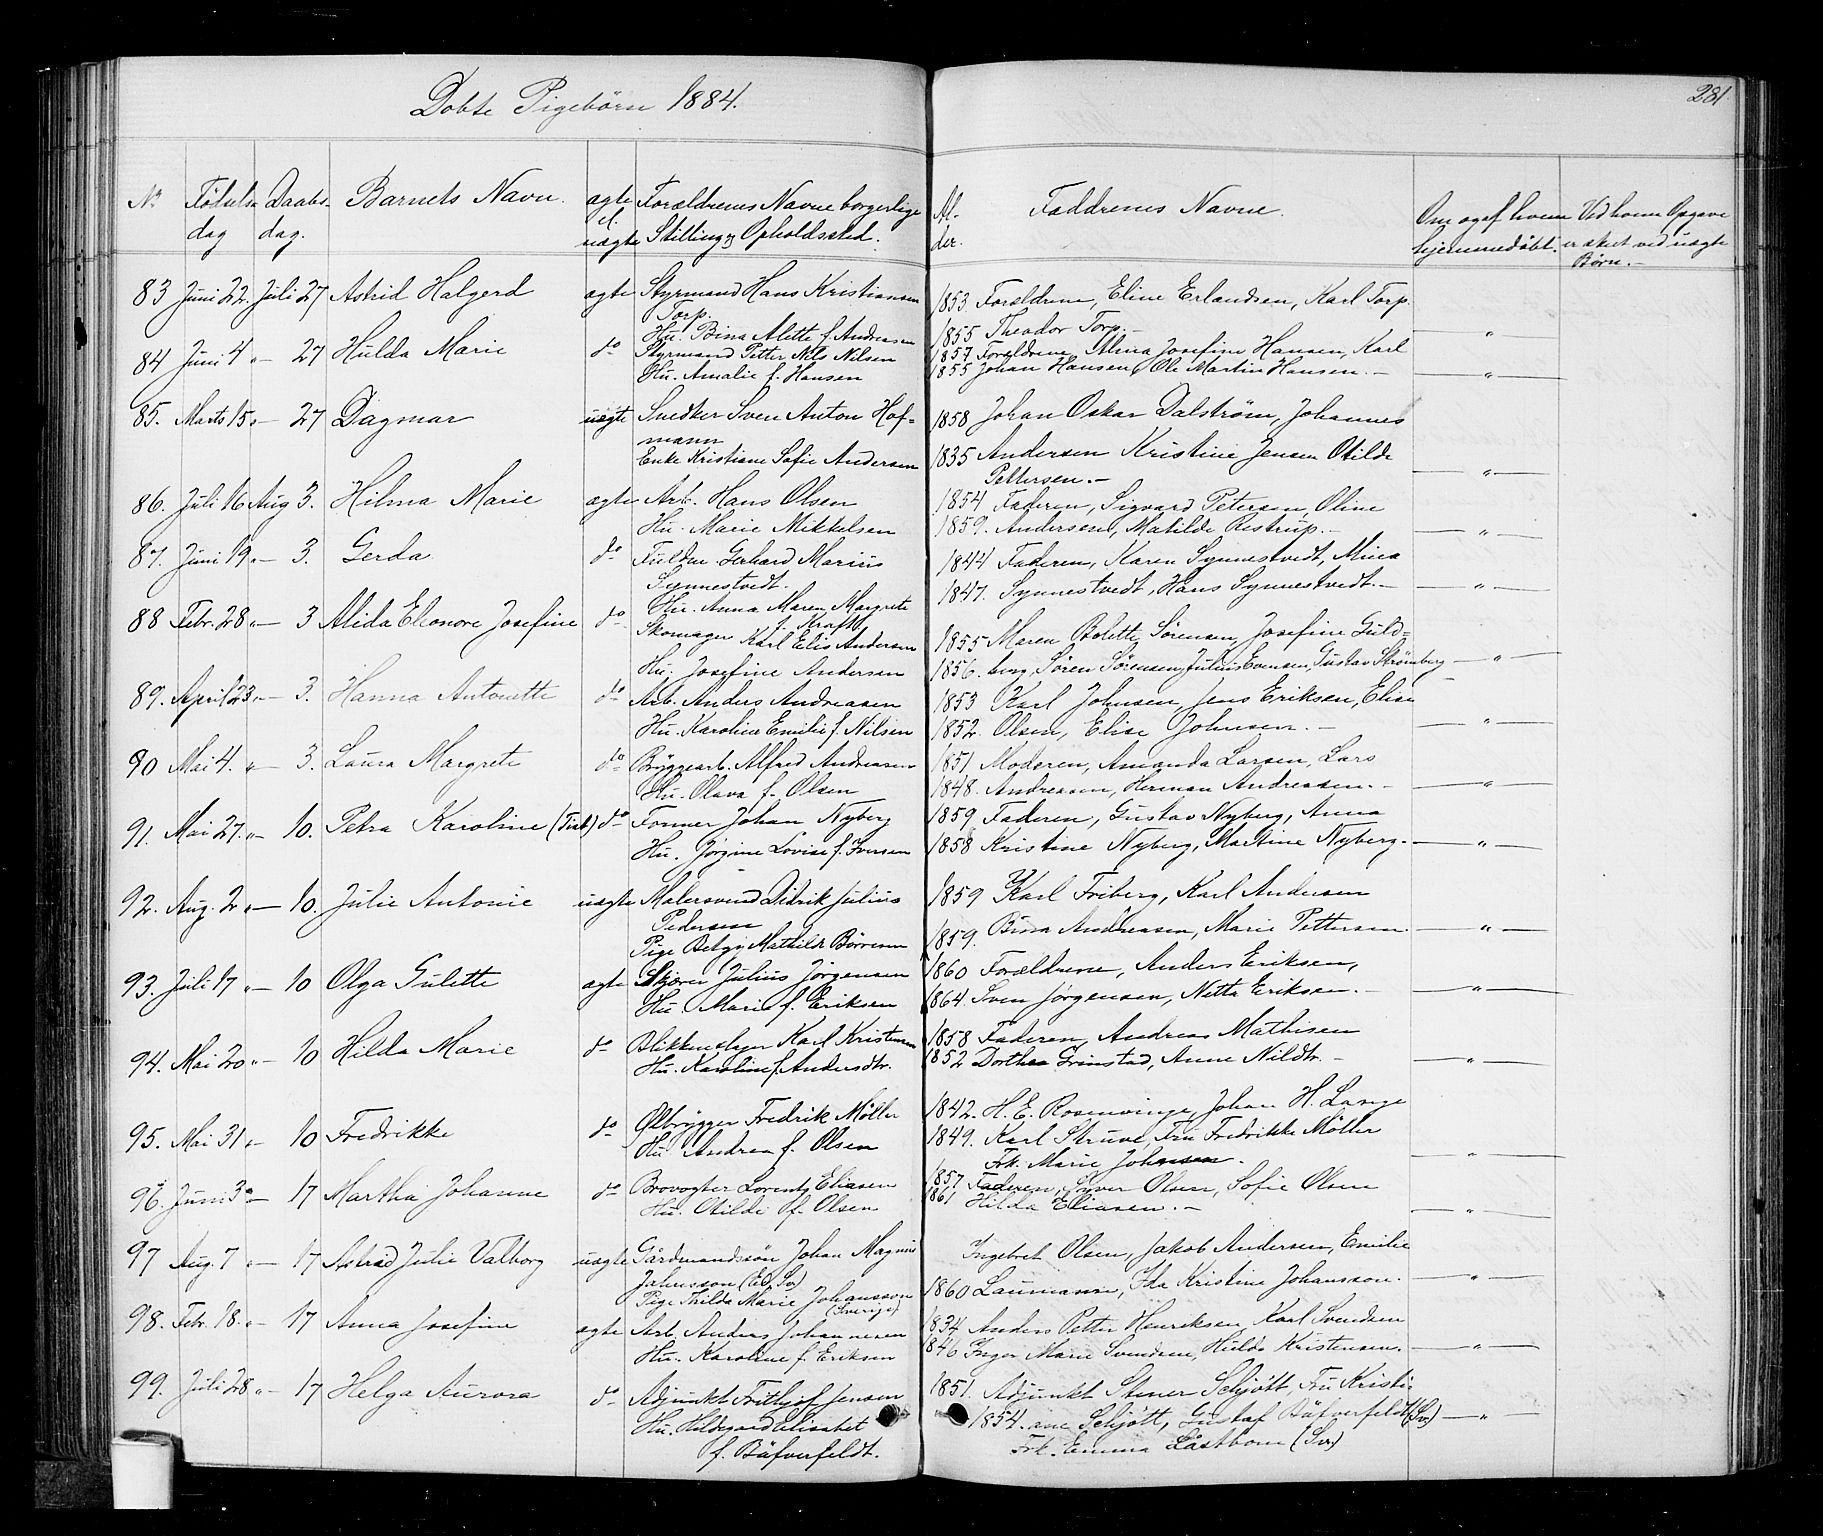 Döbte Pigebörn 1884.
281
No
Fødsels dag
Daabs- dag.
Barnets Navn.
ægte el. uægte
Forældrenes Navne borgerlige Stilling og Opholdssted.
Al- der.
Faddrenes Navne.
Om og af hvem hjemmedøbt.
Ved hvem Opgave er sket ved uægte Børn.-
83 Juni 22. Juli 27 Astrid Halgerd ægte Styrmand Hans Kristiansen 1853 Forældrene, Eline Erlandsen, Karl Torp.
Torp.
Hu. Bina Alette f. Andreasen 1855 Theodor Torp.- "
84 Juni 4 "- 27 Hulda Marie do Styrmand Petter Nils Nilsen 1857 Forældrene Alma Josefine Hansen, Karl
Hu. Amalie f. Hansen 1855 Johan Hansen, Ole Martin Hansen.- "
85. Marts 15 "- 27 Dagmar uægte Snedker Sven Anton Hof- 1858 Johan Oskar Dalstrøm, Johannes
mann
Enke Kristiane Sofie Andersen 1835 Andersen Kristine Jensen Otilde
Pettersen.- "
86. Juli 16 Aug 3. Hilma Marie ægte Arb. Hans Olsen 1854 Faderen, Sigvard Petersen, Oline
Hu. Marie Mikkelsen 1859. Andersen, Matilde Restrup.- "
87. Juni 19 "- 3. Gerda do Gerhard Marius 1844 Faderen, Karen Synnestvedt, Mina
Synnestvedt.
Hu. Anna Maren Margrete 1847. Synnestvedt, Hans Synnestvedt.- "
f. Krafft
88 Febr. 28 "- 3 Alida Eleonore Josefine do Skomager Karl Elis Andersen 1855 Maren Bolette Sørensen, Josefine Guld=
Hu. Josefine Andersen 1856. berg, Søren Sørensen, Julius Evensen, Gustav Strømberg "
89. April 23 "- 3. Hanna Antonette do Arb. Anders Andreasen 1853 Karl Johnsen, Jens Eriksen, Elise
Hu. Karoline Emilie f. Nilsen 1852. Olsen, Elise Johnsen.- "
90 Mai 4. " 3. Laura Margrete do Bryggearb. Alfred Andreasen 1851 Moderen, Amanda Larsen, Lars
Hu. Olava f. Olsen 1848. Andreasen, Herman Andreasen.- "
91. Mai 27. "- 10. Petra Karoline do Former Johan Nyberg 1859 Faderen, Gustav Nyberg, Anna
Hu. Jørgine Lovise f. Iversen 1858 Kristine Nyberg, Martine Nyberg.- "
92. Aug. 2 "- 10. Julie Antonie uægte Malersvend Didrik Julius 1859 Karl Friberg, Karl Andersen
Pedersen
Pige Betzy Mathilde 1859. Bina Andreasen, Marie Pettersen. "
93. Juli 17 "- 10 Olga Gulette ægte Julius Jørgensen 1860 Forældrene, Anders Eriksen,
Hu. Marie f. Eriksen 1864. Sven Jørgensen, Netta Eriksen.- "
94. Mai 20 "- 10 Hilda Marie do Blikkenslager Karl Kristensen 1858 Faderen, Andreas Mathisen
Hu. Karoline f. Andersdtr. 1852 Dorthea Grimstad, Anne Nilsdtr.- "
95. Mai 31 "- 10 Fredrikke do Ølbrygger Fredrik Møller 1842. H. E. Rosenvinge, Johan H. Lange
Hu. Andrea f. Olsen 1849. Karl Struve, Fru Fredrikke Møller
Frk. Marie Johnsen. "
96. Juni 3 "- 17 Martha Johanne do Brovogter Lorentz Eliasen 1857 Faderen, Syver Olsen, Sofie Olsen
Hu. Otilde f. Olsen 1861 Hilda Eliasen.- "
97 Aug. 7 "- 17 Astrid Julie Valborg uægte Gårdmandssøn Johan Magnus Ingebret Olsen, Jakob Andersen, Emilie
Johansson
Pige Thilda Marie Johansson 1860 Laumann, Ida Kristine Johansson. "
(Sverige)
98. Febr. 18. "- 17 Anna Josefine ægte Arb. Anders Johannesen 1834 Anders Petter Henriksen, Karl Svendsen
Hu. Karoline f. Eriksen 1846 Inger Marie Svendsen, Hulda Kristensen.- "
99. Juli 28 "- 17 Helga Aurora do Adjunkt Frithjof Jensen 1851. Adjunkt Stener Schjøtt, Fru Kristi-
Hu. Hildegard Elisabet 1854. ane Schjøtt, Gustaf Bäfverfeldt (Sv) "
f. Bäfverfeldt. Frk. Emma Låstbom (Sv.)